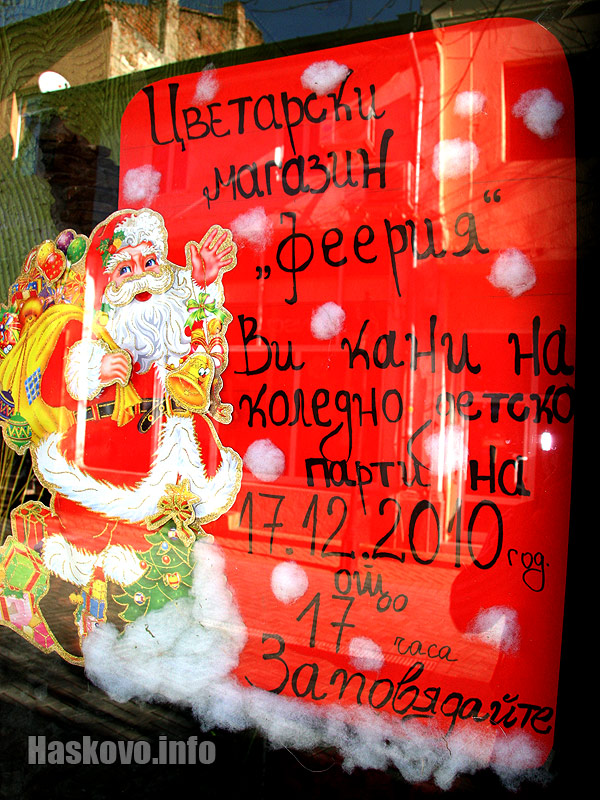 Цветарски
магазин
„Феерия“
Ви кани на
коледно детско
парти на
17.12.2010 год.
от
17 часа
Заповядайте
Haskovo.info